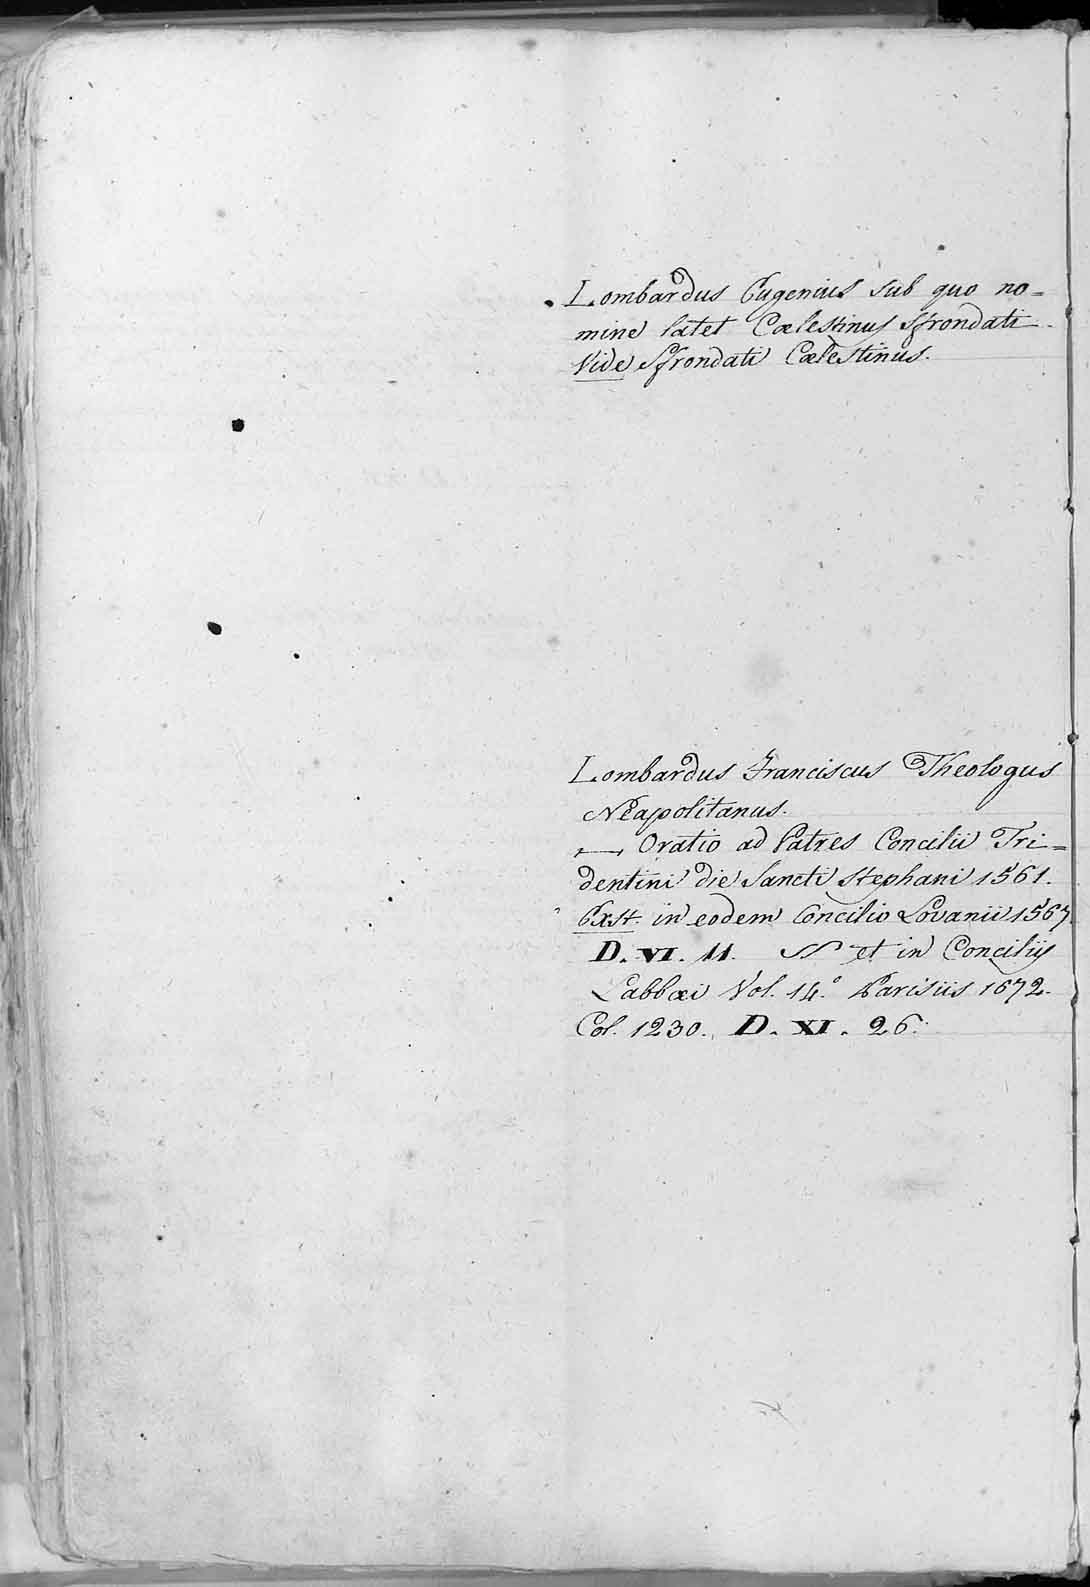 Lombardus Eugenius sub quo no=
mine latet Cœlestinus Sfrondati.
Vide Sfrondati Cœlestinus.
Lombardus Franciscus Theologus
Neapolitanus.
— Oratio ad Patres Concilii Tri=
dentini die Sancti Stephani 1561.
Exst. in eodem Concilio Lovanii 1567.
D. VI. 11. et in Conciliis
Labbæi Vol. 14.° Parisiis 1672.
Col. 1230. D. XI. 26.